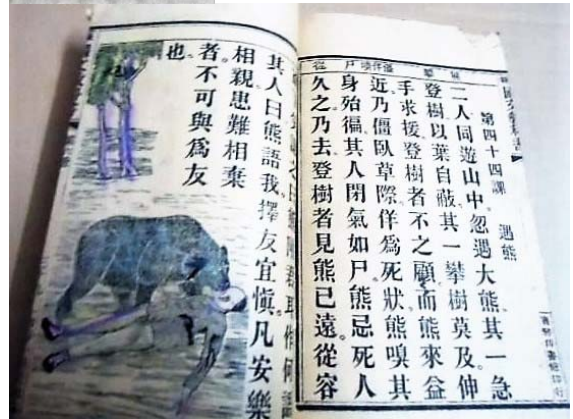 第四十四課 遇熊
二人同遊山中。忽遇大熊。其一急
登樹以葉自蔽。其一攀樹莫及。伸
手求援。登樹者不之顧。而熊來益
近。乃僵臥草際。佯爲死狀。熊嗅其
身殆徧。其人閉氣如尸。熊忌死人。
久之乃去。登樹者見熊已遠。從容
之曰熊附君耳作何
其人曰熊語我。擇友宜愼。凡安樂
相親患難相棄
者不可與爲友
也。
僵佯嗅
尸
從
商務印書館印行